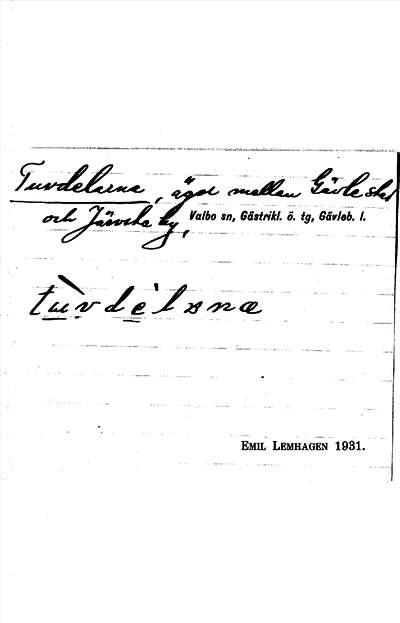 Tuvdelarna, ägor mellan Gävle stad
och Järvsta by, Valbo sn, Gästrikl. ö. tg, Gävleb. l.
tù̲vdè̲lana
EMIL LEMHAGEN 1931.